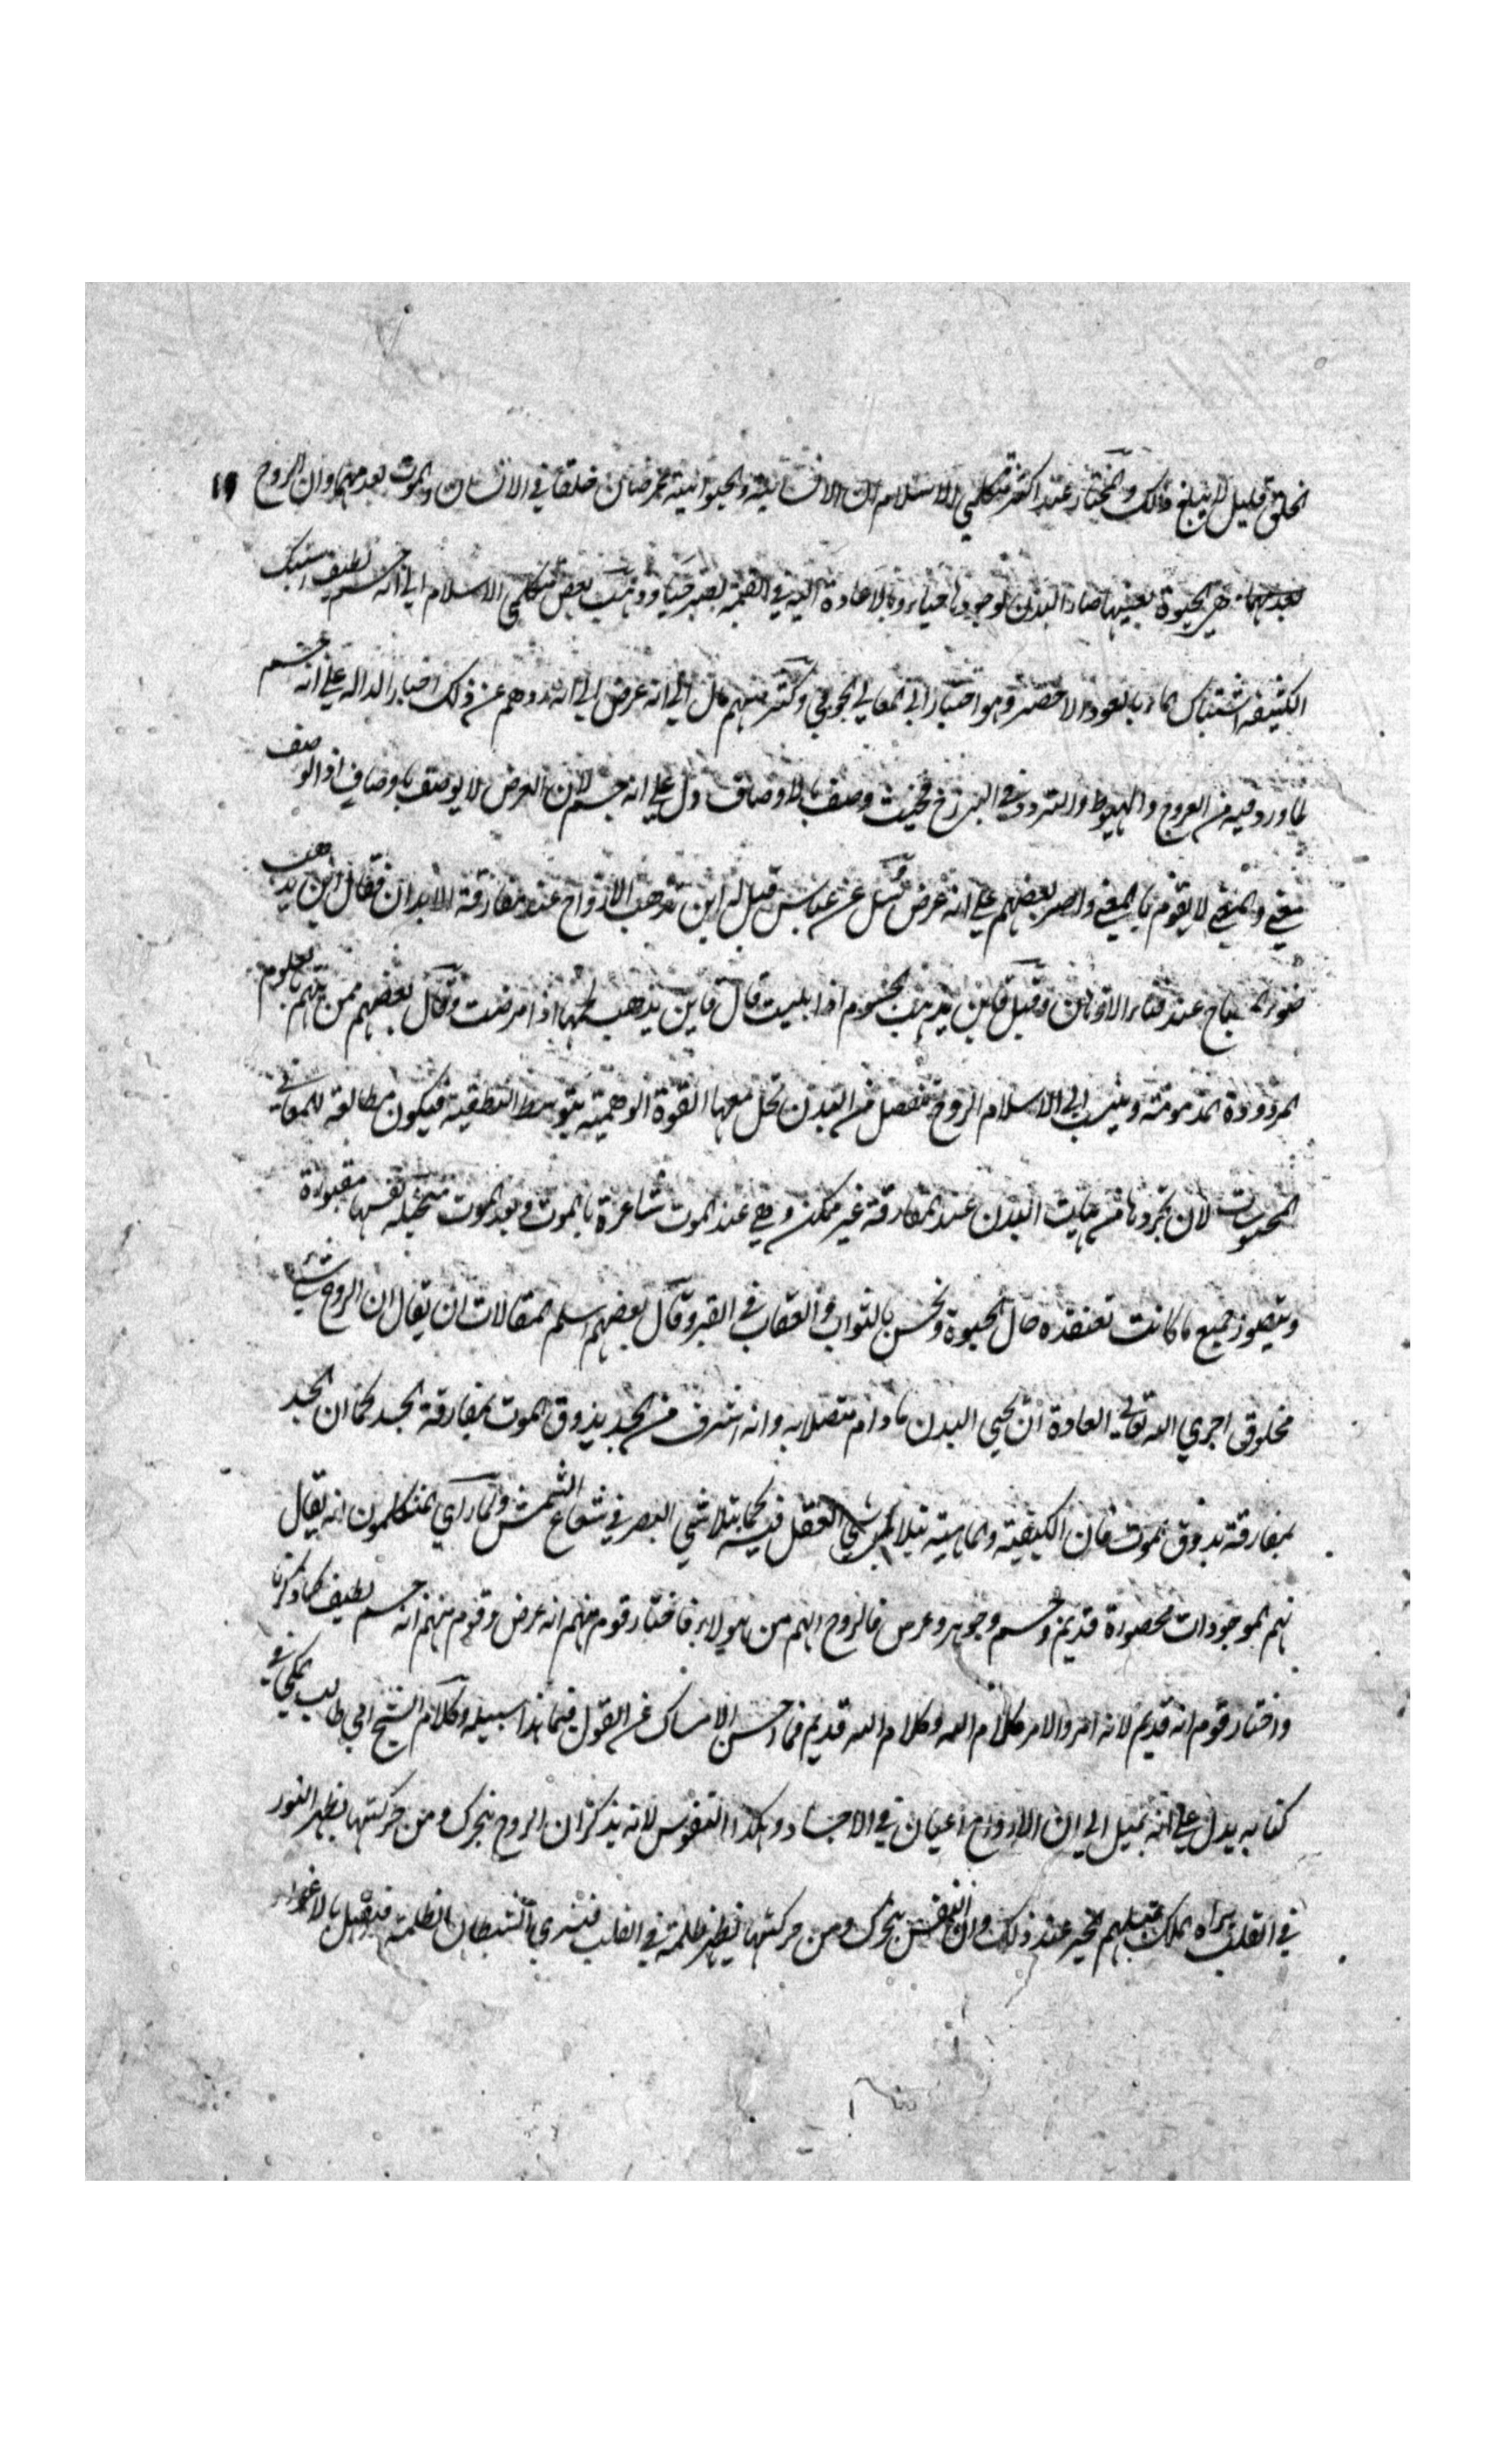 الخلق قليل لا يبلغ ذلك والمختار عند اكثر متكلمي الاسلام ان الانسانية والحيوانية عرضان خلقا في الانسان والموت يعدمهما وان الروح ١٩
هي الحيوة بعينها صار البدن لوجودها حيا وبالاعادة اليه في القيمة يصير حيا وذهب بعض متكلمي الاسلام الي انه جسم لطيف اشتبك
الكثيفة اشتباك الماء بالعود الاخضر وهو اختيار ابي المعالي الجويني وكثير منهم مال الي انه عرض الي انه ردهم عن ذلك اخبار الدالة علي انه جسم
لما ورد فيه من العروج والهبوط والتردد في البرزخ فحيث وصف بالاوصاف دل علي انه جسم لان العرض لا يوصف باوصاف اذ الوصف
معني والمعني لا يقوم بالمعني واصر بعضهم علي انه عرض سئل عن عباس قيل له اين تذهب الارواح عند مفارقة الابدان فقال اين يذهب
ضوء المصباح عند فناء الادهان وقيل فاين يذهب الجسوم اذا بليت قال فاين يذهب لحمها اذا مرضت وقال بعضهم ممن يتهم بالعلوم
المردودة المذمومة وينسب الي الاسلام الروح تنفصل من البدن تحل معها القوة الوهمية بتوسط النطقية فيكون مطالعة للمعاني
المحسوسات لان تجردها من هيات البدن عند المفارقة غير ممكن وهي عند الموت شاعرة بالموت وبعد الموت متخيلة نفسها مقبورة
وتتصور جميع ما كانت تعتقده حال الحيوة وتحس بالثواب والعقاب في القبر وقال بعضهم اسلم المقالات ان يقال ان الروح شيء
مخلوق اجري الله تعالي العادة ان يحيي البدن ما دام متصلا به وانه اشرف من الجسد يذوق الموت بمفارقة الجسد كما ان الجسد
بمفارقة يذوق الموت فان الكيفية والماهية يتلاشي العقل فيه كما يتلاشي البصر في شعاع الشمس ولما رأي المتكلمون انه يقال
لهم الموجودات محصورة قديم وجسم وجوهر وعرض فالروح ايهم من هولاء فاختار قوم منهم انه عرض وقوم منهم انه جسم لطيف كما ذكرنا
واختار قوم انه قديم لانه امر والامر كلام الله وكلام الله قديم فما احسن الامساك عن القول فيما هذا سبيله وكلام الشيخ ابي طالب المكي في
كتابه يدل علي انه يميل الي ان الارواح اعيان في الاجساد وهكذا النفوس لانه يذكر ان الروح يتحرك ومن حركتها يظهر النور
في القلب يراه الملك فيلهم الخير عند ذلك وان النفس يتحرك ومن حركتها يظهر ظلمة في القلب فيري الشيطان الظلمة فيقبل بالاغواء